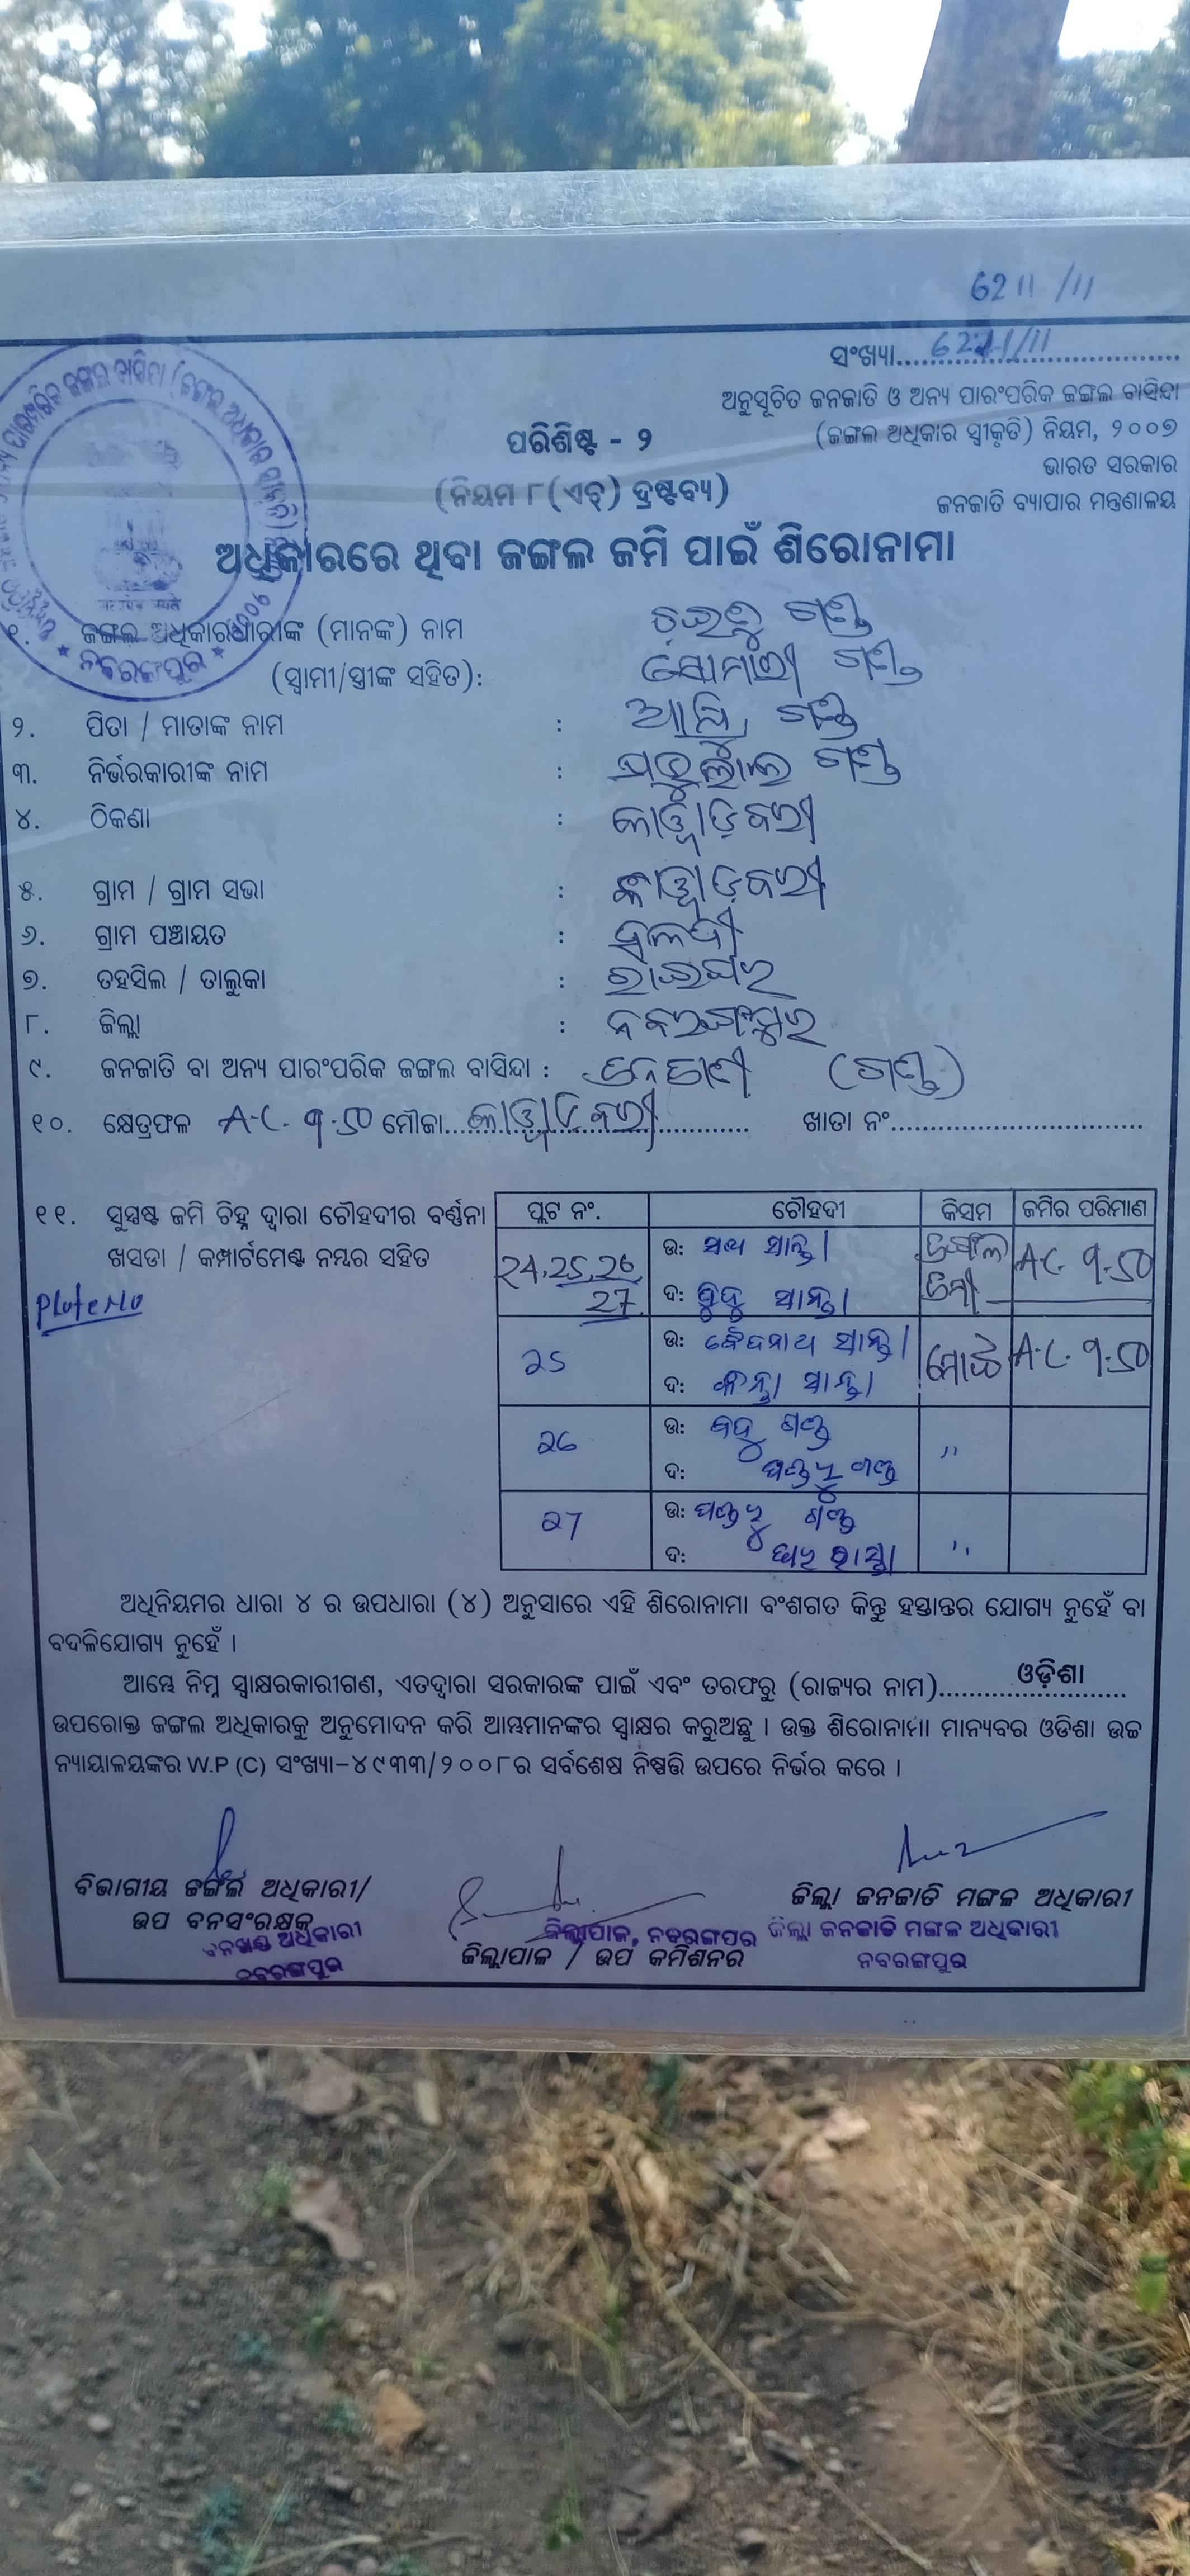 6211/11
ସଂଖ୍ୟା..........
ଅନୁସୂଚିତ ଜନଜାତି ଓ ଅନ୍ୟ ପାରଂପରିକ ଜଙ୍ଗଲ ବାସିନ୍ଦା
(ଜଙ୍ଗଲ ଅଧିକାର ସ୍ୱୀକୃତି) ନିୟମ, ୨୦୦୭
ଭାରତ ସରକାର
ଜନଜାତି ବ୍ୟାପାର ମନ୍ତ୍ରଣାଳୟ
ପରିଶିଷ୍ଟ - ୨
(ନିୟମ ୮(ଏଚ୍) ଦ୍ରଷ୍ଟବ୍ୟ)
ଅଧିକାରରେ ଥିବା ଜଙ୍ଗଲ ଜମି ପାଇଁ ଶିରୋନାମା
୧. ଜଙ୍ଗଲ ଅଧିକାରଧାରୀଙ୍କ (ମାନଙ୍କ) ନାମ ଗଣ୍ଡ
(ସ୍ୱାମୀ/ସ୍ତ୍ରୀଙ୍କ ସହିତ): ସୋମାରୀ ଗଣ୍ଡ
ନବରଙ୍ଗପୁର
୨. ପିତା / ମାତାଙ୍କ ନାମ : ଗଣ୍ଡ
୩. ନିର୍ଭରକାରୀଙ୍କ ନାମ : ଗଣ୍ଡ
୪. ଠିକଣା :
୫. ଗ୍ରାମ / ଗ୍ରାମ ସଭା :
୬. ଗ୍ରାମ ପଞ୍ଚାୟତ : ହଳଦୀ
୭. ତହସିଲ / ତାଲୁକା : ରାଇଘର
୮. ଜିଲ୍ଲା : ନବରଙ୍ଗପୁର
୯. ଜନଜାତି ବା ଅନ୍ୟ ପାରଂପରିକ ଜଙ୍ଗଲ ବାସିନ୍ଦା : ଜନଜାତୀ (ଗଣ୍ଡ)
୧୦. କ୍ଷେତ୍ରଫଳ A.C. ୨.50 ମୌଜା.......... ଖାତା ନଂ..........
୧୧. ସୁସ୍ପଷ୍ଟ ଜମି ଚିହ୍ନ ଦ୍ୱାରା ଚୌହଦୀର ବର୍ଣ୍ଣନା
ଖସଡା / କମ୍ପାର୍ଟମେଣ୍ଟ ନମ୍ବର ସହିତ
Plote No
ପ୍ଲଟ ନଂ. ଚୌହଦୀ କିସମ ଜମିର ପରିମାଣ
24,25,26 ଉ: ସାନ୍ତା ଜଙ୍ଗଲ A.C. ୨.50
27 ଦ: ବୁଦୁ ସାନ୍ତା ଜମୀ
25 ଉ: ବୈଦନାଥ ସାନ୍ତା A.C. ୨.50
ଦ: ସାନ୍ତା
26 ଉ: ଗଣ୍ଡ "
ଦ: ଗଣ୍ଡ
27 ଉ: ଗଣ୍ଡ "
ଦ: ରାସ୍ତା
ଅଧିନିୟମର ଧାରା ୪ ର ଉପଧାରା (୪) ଅନୁସାରେ ଏହି ଶିରୋନାମା ବଂଶଗତ କିନ୍ତୁ ହସ୍ତାନ୍ତର ଯୋଗ୍ୟ ନୁହେଁ ବା
ବଦଳିଯୋଗ୍ୟ ନୁହେଁ ।
ଆମ୍ଭେ ନିମ୍ନ ସ୍ୱାକ୍ଷରକାରୀଗଣ, ଏତଦ୍ୱାରା ସରକାରଙ୍କ ପାଇଁ ଏବଂ ତରଫରୁ (ରାଜ୍ୟର ନାମ)..........ଓଡ଼ିଶା..........
ଉପରୋକ୍ତ ଜଙ୍ଗଲ ଅଧିକାରକୁ ଅନୁମୋଦନ କରି ଆମ୍ଭମାନଙ୍କର ସ୍ୱାକ୍ଷର କରୁଅଛୁ । ଉକ୍ତ ଶିରୋନାମା ମାନ୍ୟବର ଓଡିଶା ଉଚ୍ଚ
ନ୍ୟାୟାଳୟଙ୍କର W.P (C) ସଂଖ୍ୟା-୪୯୩୩/୨୦୦୮ର ସର୍ବଶେଷ ନିଷ୍ପତ୍ତି ଉପରେ ନିର୍ଭର କରେ ।
ବିଭାଗୀୟ ଜଙ୍ଗଲ ଅଧିକାରୀ/
ଉପ ବନସଂରକ୍ଷକ
ବନଖଣ୍ଡ ଅଧିକାରୀ
ନବରଙ୍ଗପୁର
ଜିଲ୍ଲାପାଳ, ନବରଙ୍ଗପୁର
ଜିଲ୍ଲାପାଳ / ଉପ କମିଶନର
ଜିଲ୍ଲା ଜନଜାତି ମଙ୍ଗଳ ଅଧିକାରୀ
ଜିଲ୍ଲା ଜନଜାତି ମଙ୍ଗଳ ଅଧିକାରୀ
ନବରଙ୍ଗପୁର